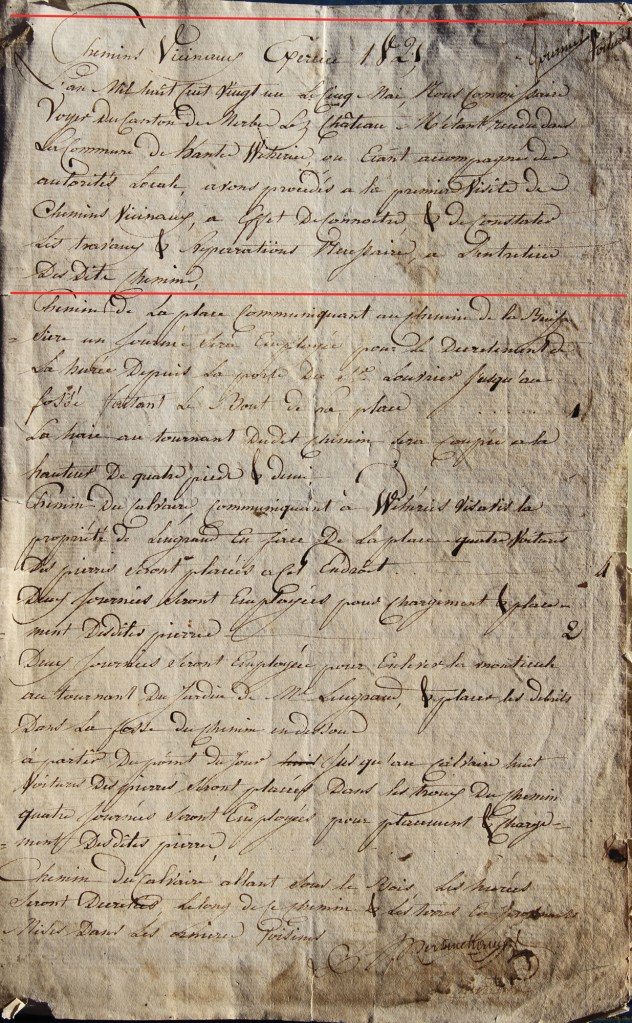 Chemins Vicinaux Exercice 1821
Journées Voitures
L'an Mil huit cent vingt un Le Cinq Mai, Nous Commissaire
Voyer Du Canton de Merbe Le Château M'étant rendu dans
La Commune de hante Wiherie, ou Etant accompagné des
autorités Locale, avons procédés a la premier Visite de
Chemins Vicinaux, a Effet De Connoitre & de Constater
Les travaux & Reparrations Necessaire, a L'entretien
Des Dits Chemins,
Chemin de La place Communiquant au Chemin de la Buissi
=siere un Journée Sera Employée pour le
La Depuis La porte Du Sr. Louvrier Jusqu'au
fossé Portant Le Bout de la place 1
La haie au tournant Dudit Chemin sera Coupée a la
hauteur De quatre pieds & demi.
Chemin Du Calvaire Communiquant à Wiheries Visavis la
propriété de Lengrand En face De La place quatre Voitures
Des pierres seront placées a Cet Endroit 4
Deux Journées Seront Employées pour Chargement & place=
ment Desdites pierre 2
Deux Journées Seront Employée pour Enlever le monticule
au tournant Du Jardin de Mr. Lengrand, & placer les debris
Dans La fosse du Chemin en dessous
à partir Du point du Jour Jusqu'au Calvaire huit
Voitures Des pierres Seront placées Dans les troux Du Chemin
quatre Journées Seront Employées pour placement & Charge=
=ment Desdites pierre
Chemin du Calvaire allant sous le Bois, Les
Seront Le long de Ce Chemin & Les terres En
Mises Dans Les ornieres Voisines